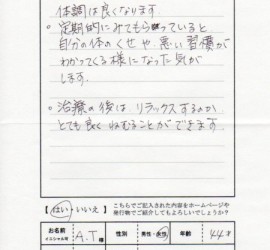 体調は良くなります。
・定期的にみてもらっていると
自分の体のくせや、悪い習慣が
わかってくる様になった気が
します。
・治療の後は リラックスするのか
とても良くねむることができます
【はい・いいえ】
こちらでご記入された内容をホームページや
発行物でご紹介してもよろしいでしょうか?
お名前
イニシャル可
A.T 様
性別
男性・女性
年齢
44才